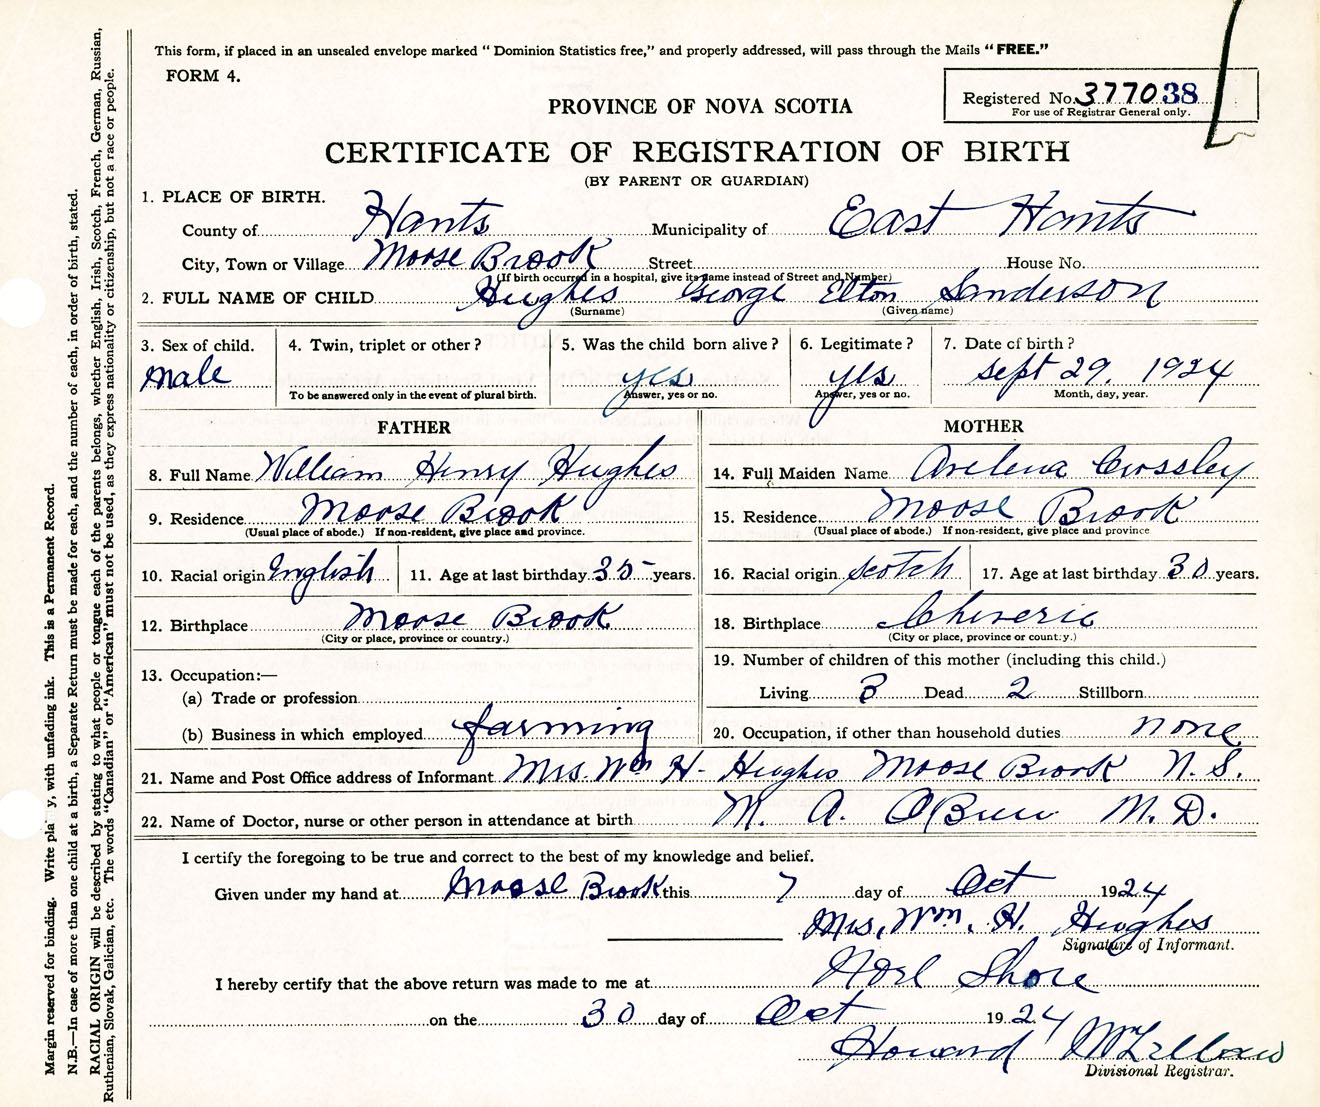 This form, if placed in an unsealed envelope marked " Dominion Statistics free," and properly addressed, will pass through the Mails " FREE."
FORM 4.
Registered No. 377038
For use of Registrar General only.
PROVINCE OF NOVA SCOTIA
CERTIFICATE OF REGISTRATION OF BIRTH
(BY PARENT OR GUARDIAN)
1. PLACE OF BIRTH.
County of Hants Municipality of East Hants
City, Town or Village Moose Brook Street House No.
(If birth occurred in a hospital, give its name instead of Street and Number)
2. FULL NAME OF CHILD Hughes George Elton Sanderson
(Surname) (Given name)
3. Sex of child. 4. Twin, triplet or other? 5. Was the child born alive? 6. Legitimate? 7. Date of birth?
male yes yes sept 29. 1924
To be answered only in the event of plural birth. Answer, yes or no. Answer, yes or no. Month, day, year.
FATHER
8. Full Name William Henry Hughes
9. Residence Moose Brook
(Usual place of abode.) If non-resident, give place and province.
10. Racial origin English 11. Age at last birthday 35 years.
12. Birthplace Moose Brook
(City or place, province or country.)
13. Occupation:—
(a) Trade or profession
(b) Business in which employed farming
MOTHER
14. Full Maiden Name Avelena Crossley
15. Residence Moose Brook
(Usual place of abode.) If non-resident, give place and province
16. Racial origin scotch 17. Age at last birthday 30 years.
18. Birthplace Cheverie
(City or place, province or country.)
19. Number of children of this mother (including this child.)
Living 3 Dead 2 Stillborn
20. Occupation, if other than household duties none
21. Name and Post Office address of Informant Mrs. Wm H- Hughes Moose Brook N. S.
22. Name of Doctor, nurse or other person in attendance at birth M. A. O'Brien M. D.
I certify the foregoing to be true and correct to the best of my knowledge and belief.
Given under my hand at Moose Brook this 7 day of Oct 1924
Mrs, Wm. H. Hughes
Signature of Informant.
I hereby certify that the above return was made to me at Noel Shore
on the 30 day of Oct 1924
Howard
Divisional Registrar.
Margin reserved for binding. Write pla y, with unfading ink. This is a Permanent Record.
N.B.—In case of more than one child at a birth, a Separate Return must be made for each, and the number of each, in order of birth, stated.
RACIAL ORIGIN will be described by stating to what people or tongue each of the parents belongs, whether English, Irish, Scotch, French, German, Russian,
Ruthenian, Slovak, Galician, etc. The words "Canadian" or "American" must not be used, as they express nationality or citizenship, but not a race or people.